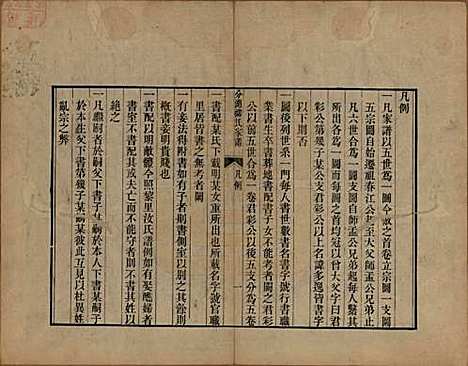 凡例
一凡家譜以五世為一圖今敝之首卷立宗圖一支圖
五宗圖自始遷祖春江公起至大父師孟公兄弟止
凡六世合為一圖支圖自師孟公兄弟起每人繫其
所出各為一圖而每圖之首均冠以曾大父字曰君
彩公第幾子某公支君彩公以上名諱多逸皆書字
以下則否
一圖後列世系一門每人書世數書名書字號行書職
業書生卒書葬地書配書子女不能考者闕之君彩
公以前五世合為一卷君彩公以後五支分為五卷
分湖柳氏家譜 凡例 一
一書配某氏下載明某女重所出也所載名字號官職
里居皆書之無考者闕
一有妾法得附書者則書側室以別之其餘則
概書妾明嫡體今照黎里汝氏譜例如有娶應婦
書室不書配其或夫亡而不能守者則不書其姓以
絕之
一凡繼嗣者於嗣父下書子某於本人下書某嗣
於本生父下書第幾子某嗣某彼此可見以杜異姓
亂宗之弊